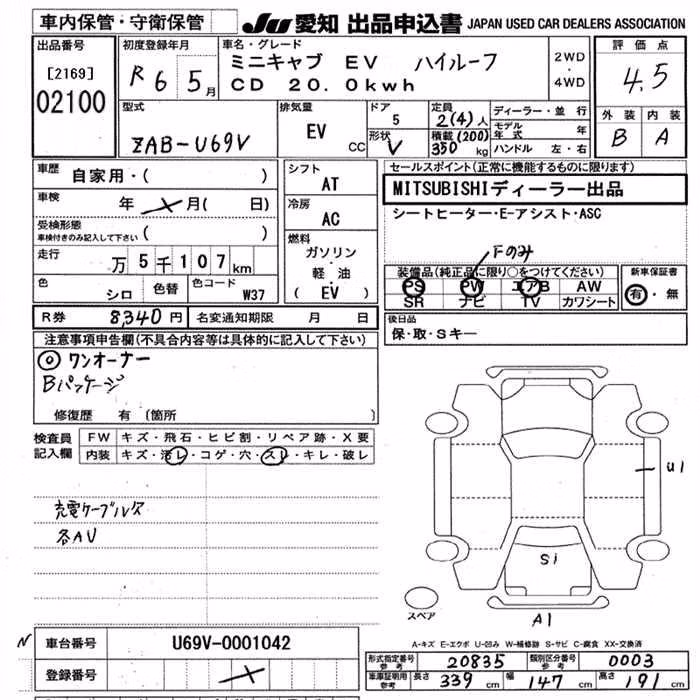 車内保管・守衛保管
JU 愛知 出品申込書 JAPAN USED CAR DEALERS ASSOCIATION
出品番号
[2169]
02100
初度登録年月
R 6 5月
車名・グレード
ミニキャブ EV ハイルーフ
CD 20.0kwh
2WD
・
4WD
評価点
4.5
外装 内装
B A
型式
ZAB-U69V
排気量
EV
CC
ドア
5
形状
V
定員
2(4)人
積載(200)
350 kg
ディーラー・並行
モデル年式 年
ハンドル 左・右
車歴
自家用・( )
車検
年 月( 日)
受検形態
車検付きのみ記入して下さい ( )
走行
万5千107km
色
シロ
色替
色コード
W37
シフト
AT
冷房
AC
燃料
ガソリン
・
軽油
( EV )
セールスポイント(正常に機能するものに限ります)
MITSUBISHIディーラー出品
シートヒーター・E-アシスト・ASC
Fのみ
装備品(純正品に限り○をつけてください)
PS PW エアB AW
SR ナビ TV カワシート
新車保証書
有・無
R券 8,340円 名変通知期限 月 日
後日品
保・取・Sキー
注意事項申告欄(不具合内容等は具体的に記入して下さい)
◎ ワンオーナー
Bパッケージ
修復歴 有 (箇所
検査員
記入欄
FW キズ・飛石・ヒビ割・リペア跡・X要
内装 キズ・汚レ・コゲ・穴・スレ・キレ・破レ
充電ケーブル欠
各AU
U1
S1
A1
スペア
A-キズ E-エクボ U-凹み W-補修跡 S-サビ C-腐食 XX-交換済
N
車台番号 U69V-0001042
登録番号
形式指定番号 参考 20835 類別区分番号 参考 0003
車庫証明用 参考 長さ 339 cm 幅 147 cm 高さ 191 cm